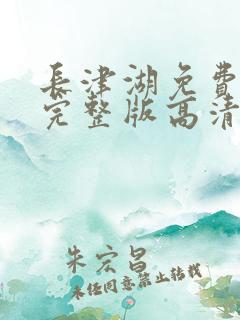 長津湖免費
完整版高清
朱宏昌
未任同意禁止转载